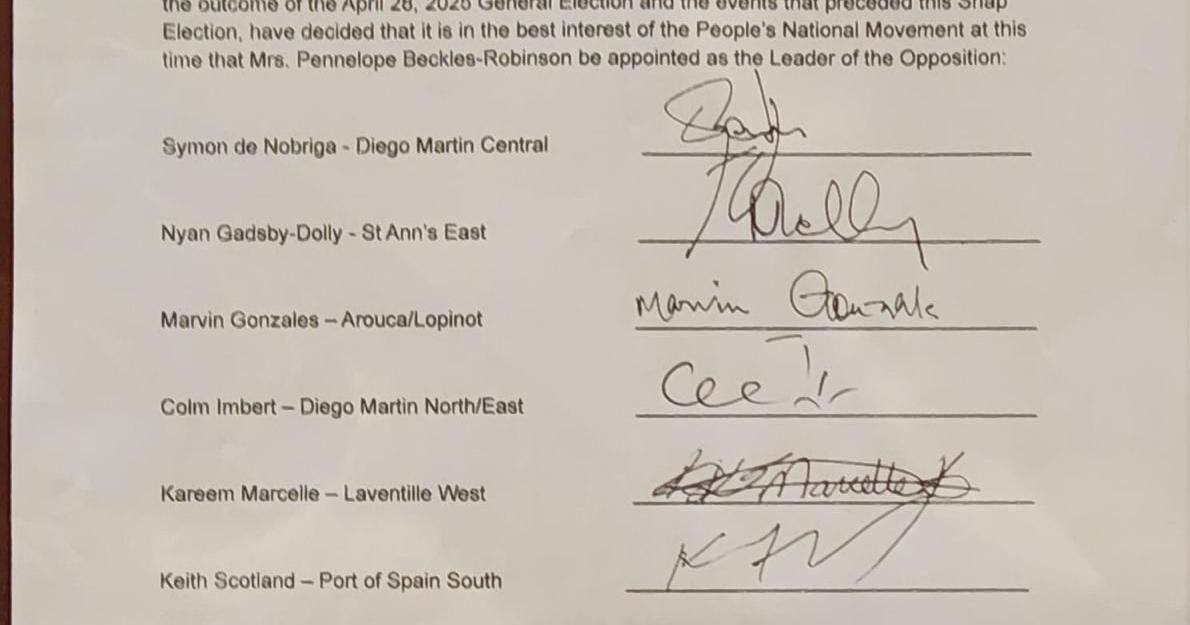 the outcome of the April 28, 2025 General Election and the events that preceded this Snap
Election, have decided that it is in the best interest of the People's National Movement at this
time that Mrs. Pennelope Beckles-Robinson be appointed as the Leader of the Opposition:
Symon de Nobriga - Diego Martin Central
Nyan Gadsby-Dolly - St Ann's East
Marvin Gonzales – Arouca/Lopinot Marvin Gonzales
Colm Imbert – Diego Martin North/East
Kareem Marcelle – Laventille West Marcelle
Keith Scotland – Port of Spain South